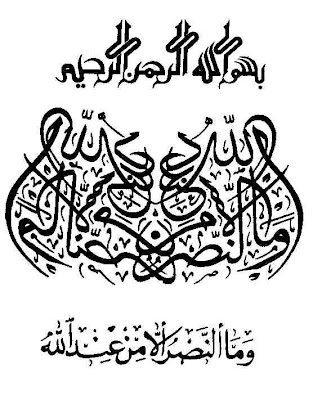 بسم الله الرحمن الرحيم
وما النصر إلا من عند الله
وَمَا النَّصْرُ إِلَّا مِنْ عِنْدِ اللهِ